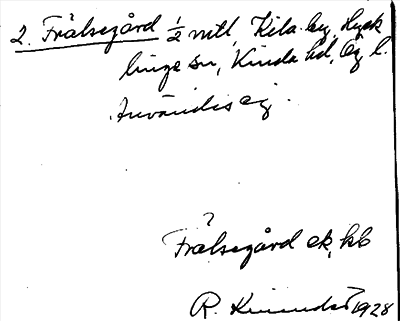 2. Frälsegård ½ mtl, Kila by, Hyck
linge sn, Kinda hd, Ög l.
Användes ej.
?
Frälsegård ek, kb
R. 1928